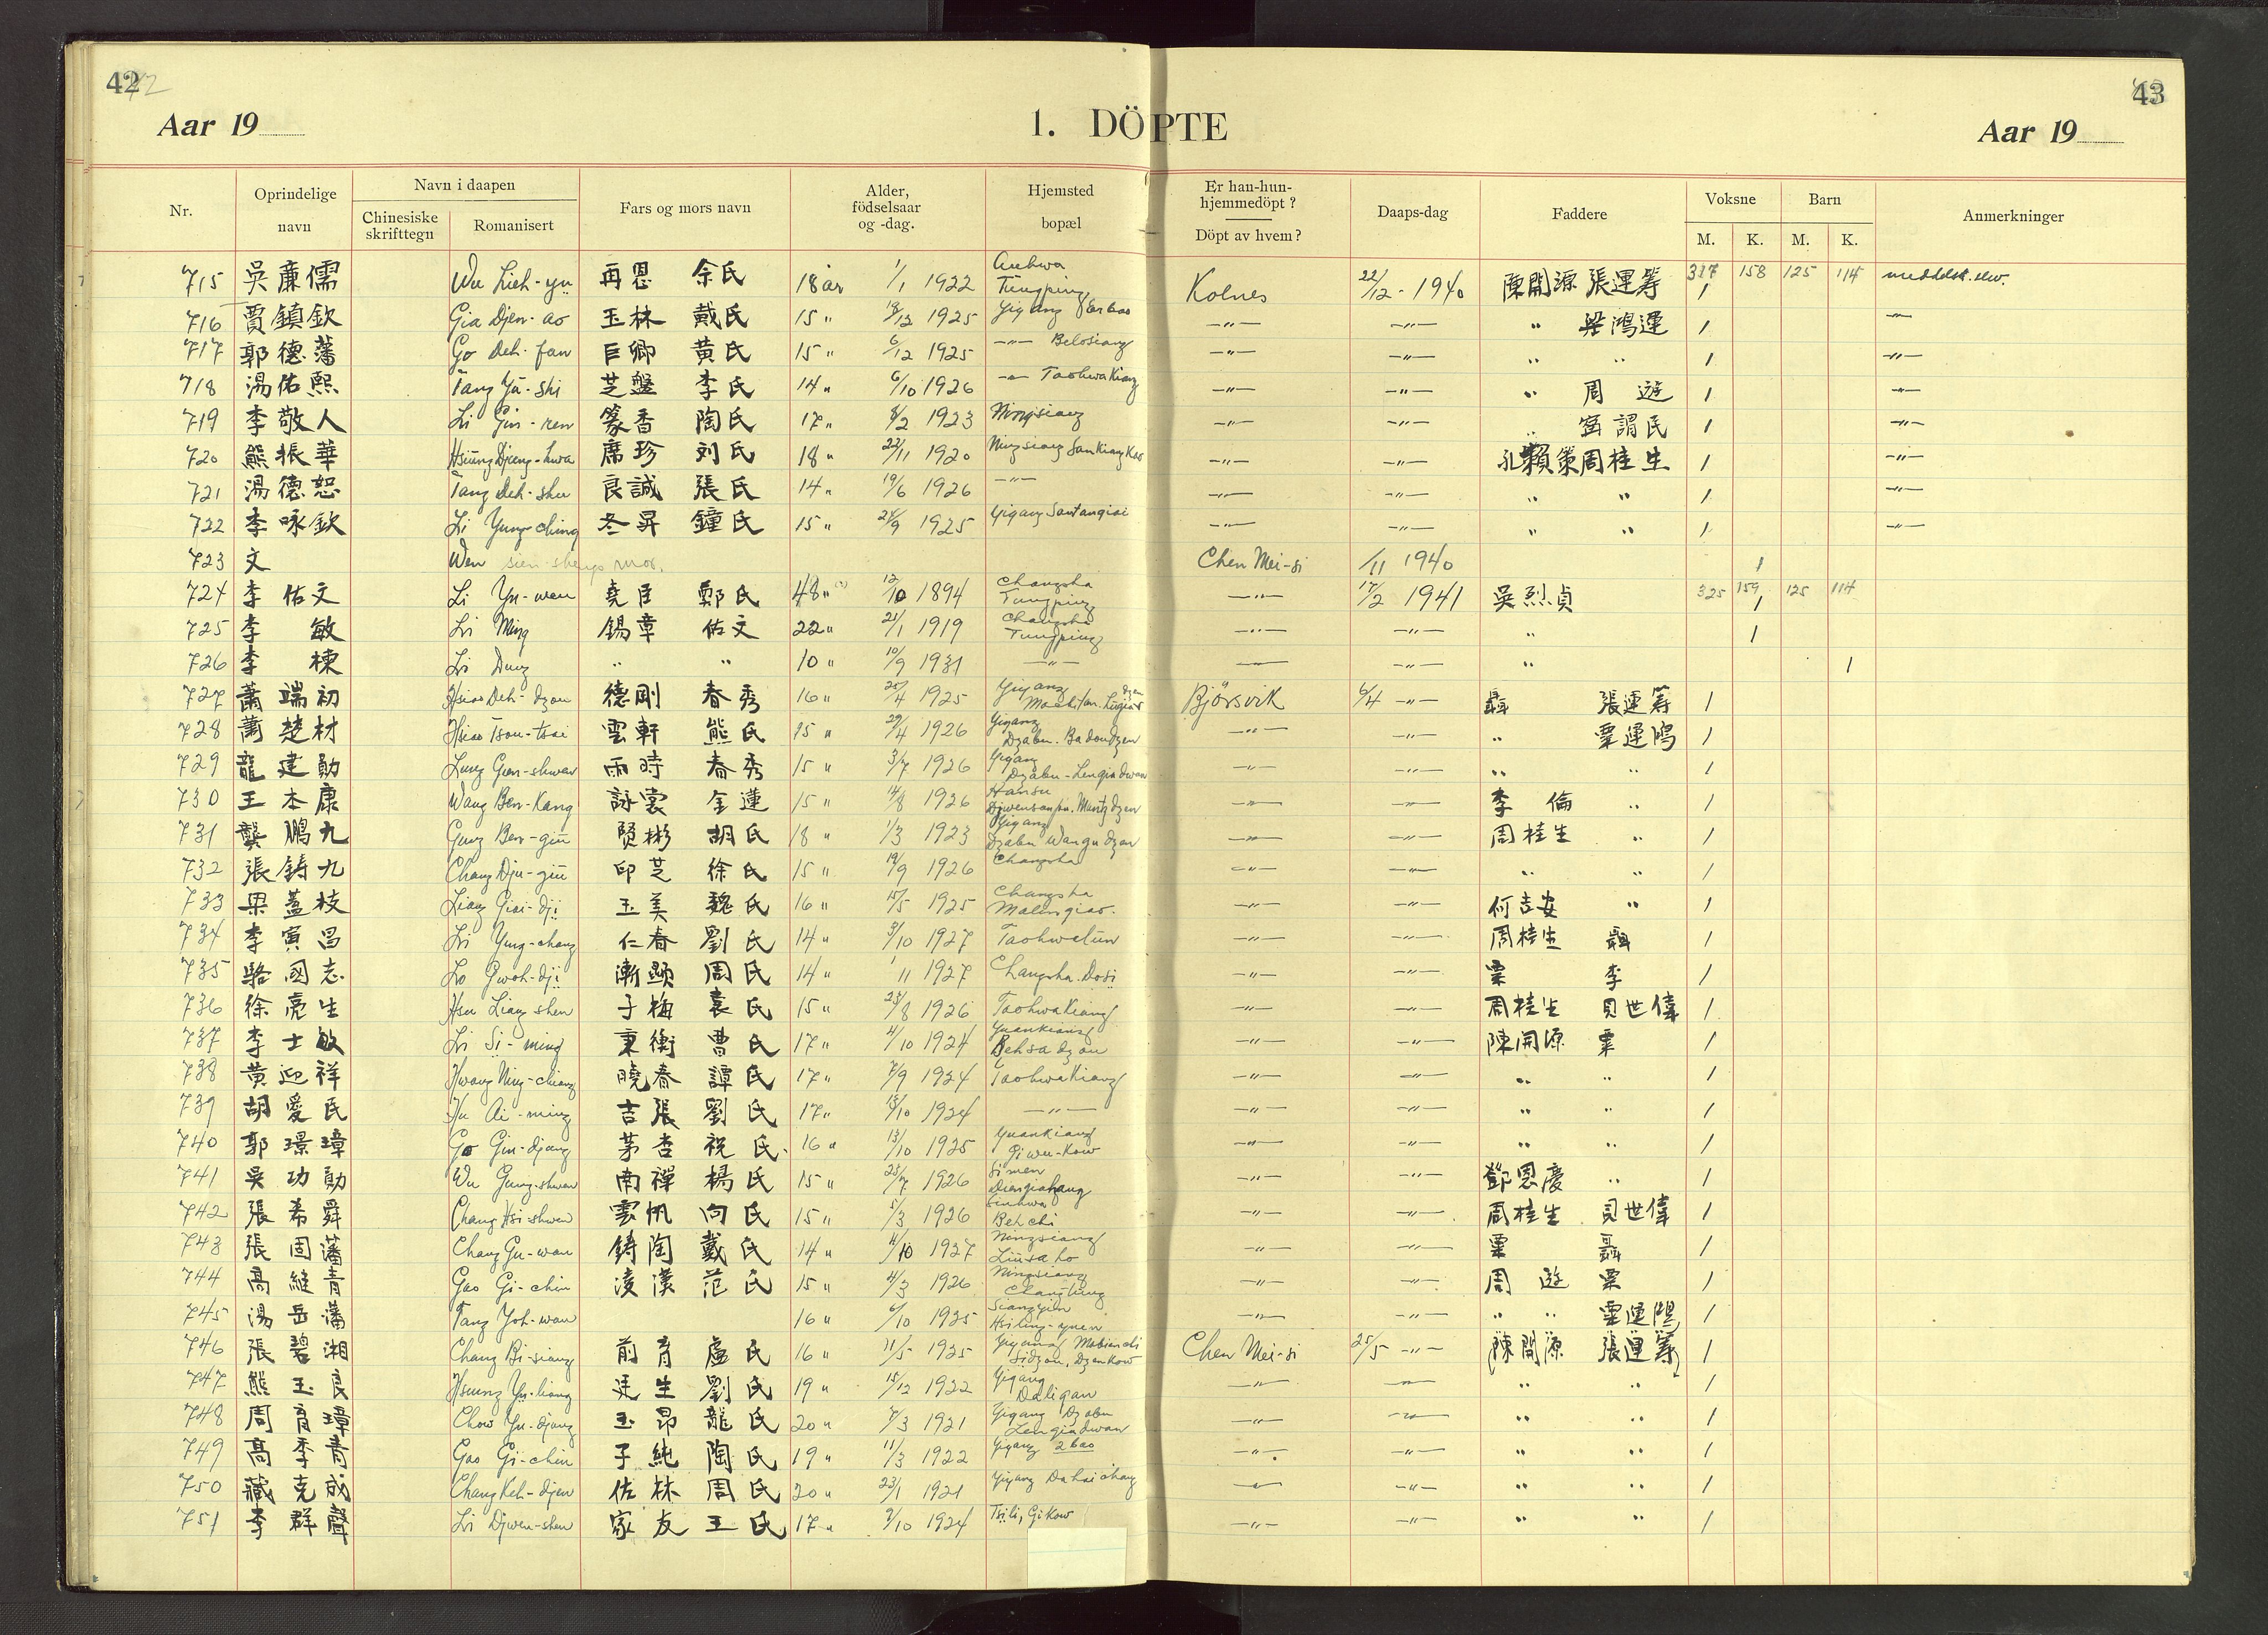 42 42
43
Aar 19
1. DÖPTE
Aar 19
Nr. Oprindelige navn Navn i daapen Chinesiske skrifttegn Romanisert Fars og mors navn Alder, födselsaar og -dag. Hjemsted bopæl Er han-hun-hjemmedöpt? Döpt av hvem? Daaps-dag Faddere Voksne M. K. Barn M. K. Anmerkninger
715 吳廉儒 Wu Lieh-yu 再恩 余氏 18 år 1/1 1922 Anhwa Tungping Kolnes 22/12-1940 陳開源 張運籌 317 1 158 125 114
716 賈鎮欽 Gia Djen-ao 玉林 戴氏 15 " 1925 Yiyang —"— —"— " 梁鴻運 1 —"—
717 郭德藩 Go Deh-fan 巨卿 黃氏 15 " 6/12 1925 —"— Belosiang —"— —"— " " 1 —"—
718 湯佑熙 Tang Yu-shi 芝盤 李氏 14 " 6/10 1926 —"— Taohwakiang —"— —"— " 周 遊 1 —"—
719 李敬人 Li Gin-ren 篆香 陶氏 17 " 8/2 1923 Ningsiang —"— —"— " 謂民 1 —"—
720 熊振華 Hsiung Djeng-hwa 席珍 刘氏 18 " 22/11 1920 Ningsiang —"— —"— 周桂生 1 —"—
721 湯德恕 Tang Deh-shu 良誠 張氏 14 " 19/6 1926 —"— —"— —"— " " 1 —"—
722 李咏欽 Li Yung-ching 冬昇 鐘氏 15 " 24/9 1925 Yiyang —"— —"— " " 1 —"—
723 文 Wen sien-shengs mor. Chen Mei-si /11 1940 1
724 李佑文 Li Yu-wen 堯臣 鄭氏 48 " 12/10 1894 Changsha Tungping —"— 17/2 1941 吳烈貞 325 159 1 125 114
725 李敏 Li Ming 錫章 佑文 22 " 21/1 1919 Changsha Tungping —"— —"— " 1
726 李棟 Li Dung " " 10 " 10/9 1931 —"— —"— —"— " 1
727 蕭端初 Hsiao Deh-dzou 德剛 春秀 16 " 25/4 1925 Yiyang Björsvik 6/4 —"— 聶 張運籌 1
728 蕭楚材 Hsiao Tsou-tsai 雲軒 熊氏 15 " 29/4 1926 Yiyang Dzabu. Badoudzen —"— —"— " 粟運鴻 1
729 龍建勛 Lung Gien-shwen 雨時 春秀 15 " 3/7 1926 Yiyang Dzabu-Lengiadwan —"— " " 1
730 王本康 Wang Ben-Kang 詠裳 金蓮 15 " 14/8 1926 Hansu —"— —"— 李倫 " 1
731 龔鵬九 Gung Ben-giu 賢彬 胡氏 18 " 1/3 1923 Yiyang Dzabu —"— —"— 周桂生 " 1
732 張鑄九 Chang Dju-giu 印芝 徐氏 15 " 19/9 1926 Changsha —"— —"— " " 1
733 梁蓋枝 Liang Giai-dji 玉美 魏氏 16 " 15/5 1925 Changsha Malingiao. —"— —"— 何吉安 " 1
734 李寅昌 Li Ying-chang 仁春 劉氏 14 " 3/10 1927 Taohwalun —"— —"— 周桂生 聶 1
735 駱國志 Lo Gwoh-dji 漸顯 周氏 14 " 1/11 1927 Changsha. Dosi —"— —"— 粟 李 1
736 徐亮生 Hsu Liang-shen 子梅 袁氏 15 " 23/8 1926 Taohwakiang —"— —"— 周桂生 貝世偉 1
737 李士敏 Li Si-ming 秉衡 曹氏 17 " 4/10 1924 Yuankiang Behsadzou —"— —"— 陳開源 粟 1
738 黃迎祥 Hwang Ning-chiang 曉春 譚氏 17 " 7/9 1924 Taohwakiang —"— —"— " " 1
739 胡愛民 Hu Ai-ming 吉張 劉氏 17 " 15/10 1924 —"— —"— —"— " " 1
740 郭璟璋 Go Gin-djang 茅杏 祝氏 16 " 13/10 1925 Yuankiang Giwu-kow —"— —"— " " 1
741 吳功勛 Wu Gung-shwen 南禪 楊氏 15 " 25/7 1926 Simen —"— —"— 鄧恩慶 " 1
742 張希舜 Chang Hsi-shwen 雲帆 向氏 15 " 5/3 1926 Sinhwa Behchi —"— —"— 周桂生 貝世偉 1
743 張固藩 Chang Gu-wan 鑄陶 戴氏 14 " 11/10 1927 Ningsiang Liusaho —"— —"— 粟 聶 1
744 高繼青 Gao Gi-chin 淩漢 范氏 15 " 4/3 1926 Ningsiang —"— —"— 周遊 粟 1
745 湯岳藩 Tang Yoh-wan 16 " 6/10 1925 Siangyin —"— —"— " " 粟運 1
746 張碧湘 Chang Bi-siang 前育 盧氏 16 " 11/5 1925 Yiyang Chen Mei-si 25/5 —"— (陳開源 張運籌) 1
747 熊玉良 Hsiung Yu-liang 廷生 劉氏 19 " 15/12 1922 Yiyang —"— —"— " " 1
748 周育璋 Chow Yu-djang 玉昂 龍氏 20 " 7/3 1921 Yiyang Dzabu Lengiadwan —"— —"— " " 1
749 高季青 Gao Gi-chin 子純 陶氏 19 " 11/3 1922 Yiyang 2 bao —"— —"— " " 1
750 藏克成 Chang Keh-djen 佐林 周氏 20 " 23/1 1921 Yiyang —"— —"— " " 1
751 李群聲 Li Djwen-shen 家友 王氏 17 " 9/10 1924 Tsili, Gikow —"— —"— " " 1